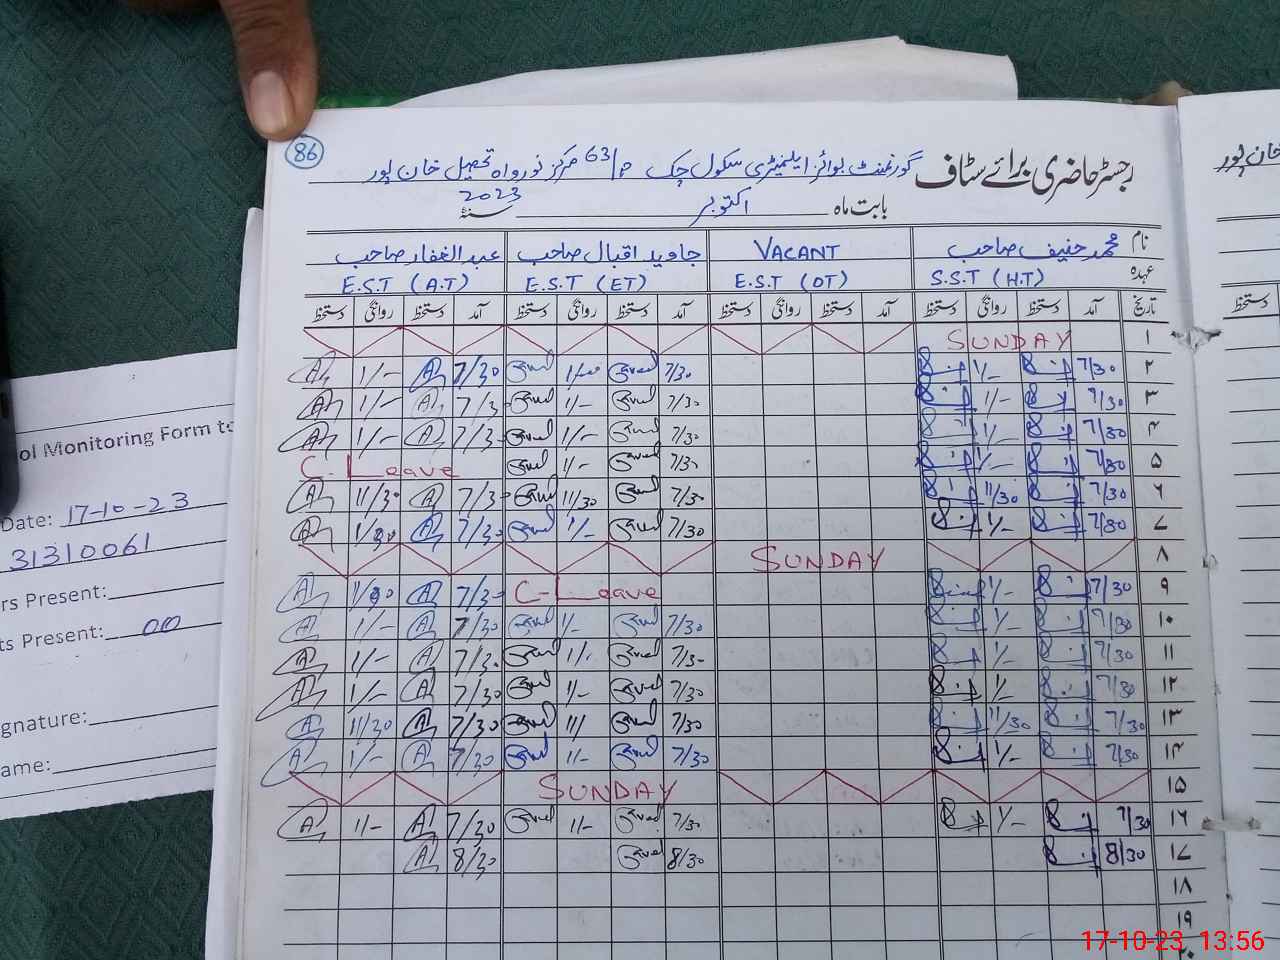 86
رجسٹر حاضری برائے سٹاف گورنمنٹ بوائز ایلیمنٹری سکول چک 63/P مرکز نورواہ تحصیل خان پور
بابت ماہ اکتوبر سنہ 2023
نام محمد حنیف صاحب VACANT جاوید اقبال صاحب عبدالغفار صاحب
عہدہ S.S.T (H.T) E.S.T (DT) E.S.T (ET) E.S.T (A.T)
تاریخ آمد دستخط روانگی دستخط آمد دستخط روانگی دستخط آمد دستخط روانگی دستخط آمد دستخط روانگی دستخط
۱ SUNDAY
۲ 7/30 1/- 7/30 1/- 7/30 1/-
۳ 7/30 1/- 7/30 1/- 7/3- 1/-
۴ 7/30 1/- 7/30 1/- 7/3- 1/-
۵ 7/30 1/- 7/30 1/- C-Leave
۶ 7/30 11/30 7/30 11/30 7/3- 11/30
۷ 7/30 1/- 7/30 1/- 7/30 1/30
۸ SUNDAY
۹ 7/30 1/- C-Leave 7/30 1/30
۱۰ 7/30 1/- 7/30 1/- 7/30 1/-
۱۱ 7/30 1/- 7/3- 1/- 7/30 1/-
۱۲ 7/30 1/- 7/30 1/- 7/30 1/-
۱۳ 7/30 11/30 7/30 11/ 7/30 11/30
۱۴ 7/30 1/- 7/30 1/- 7/30 1/-
۱۵ SUNDAY
۱۶ 7/30 1/- 7/30 1/- 7/30 1/-
۱۷ 8/30 8/30 8/30
۱۸
۱۹
۲۰
خان پور
دستخط
ol Monitoring Form to
Date: 17-10-23
31310061
rs Present:
ts Present: 00
ignature:
ame:
17-10-23 13:56